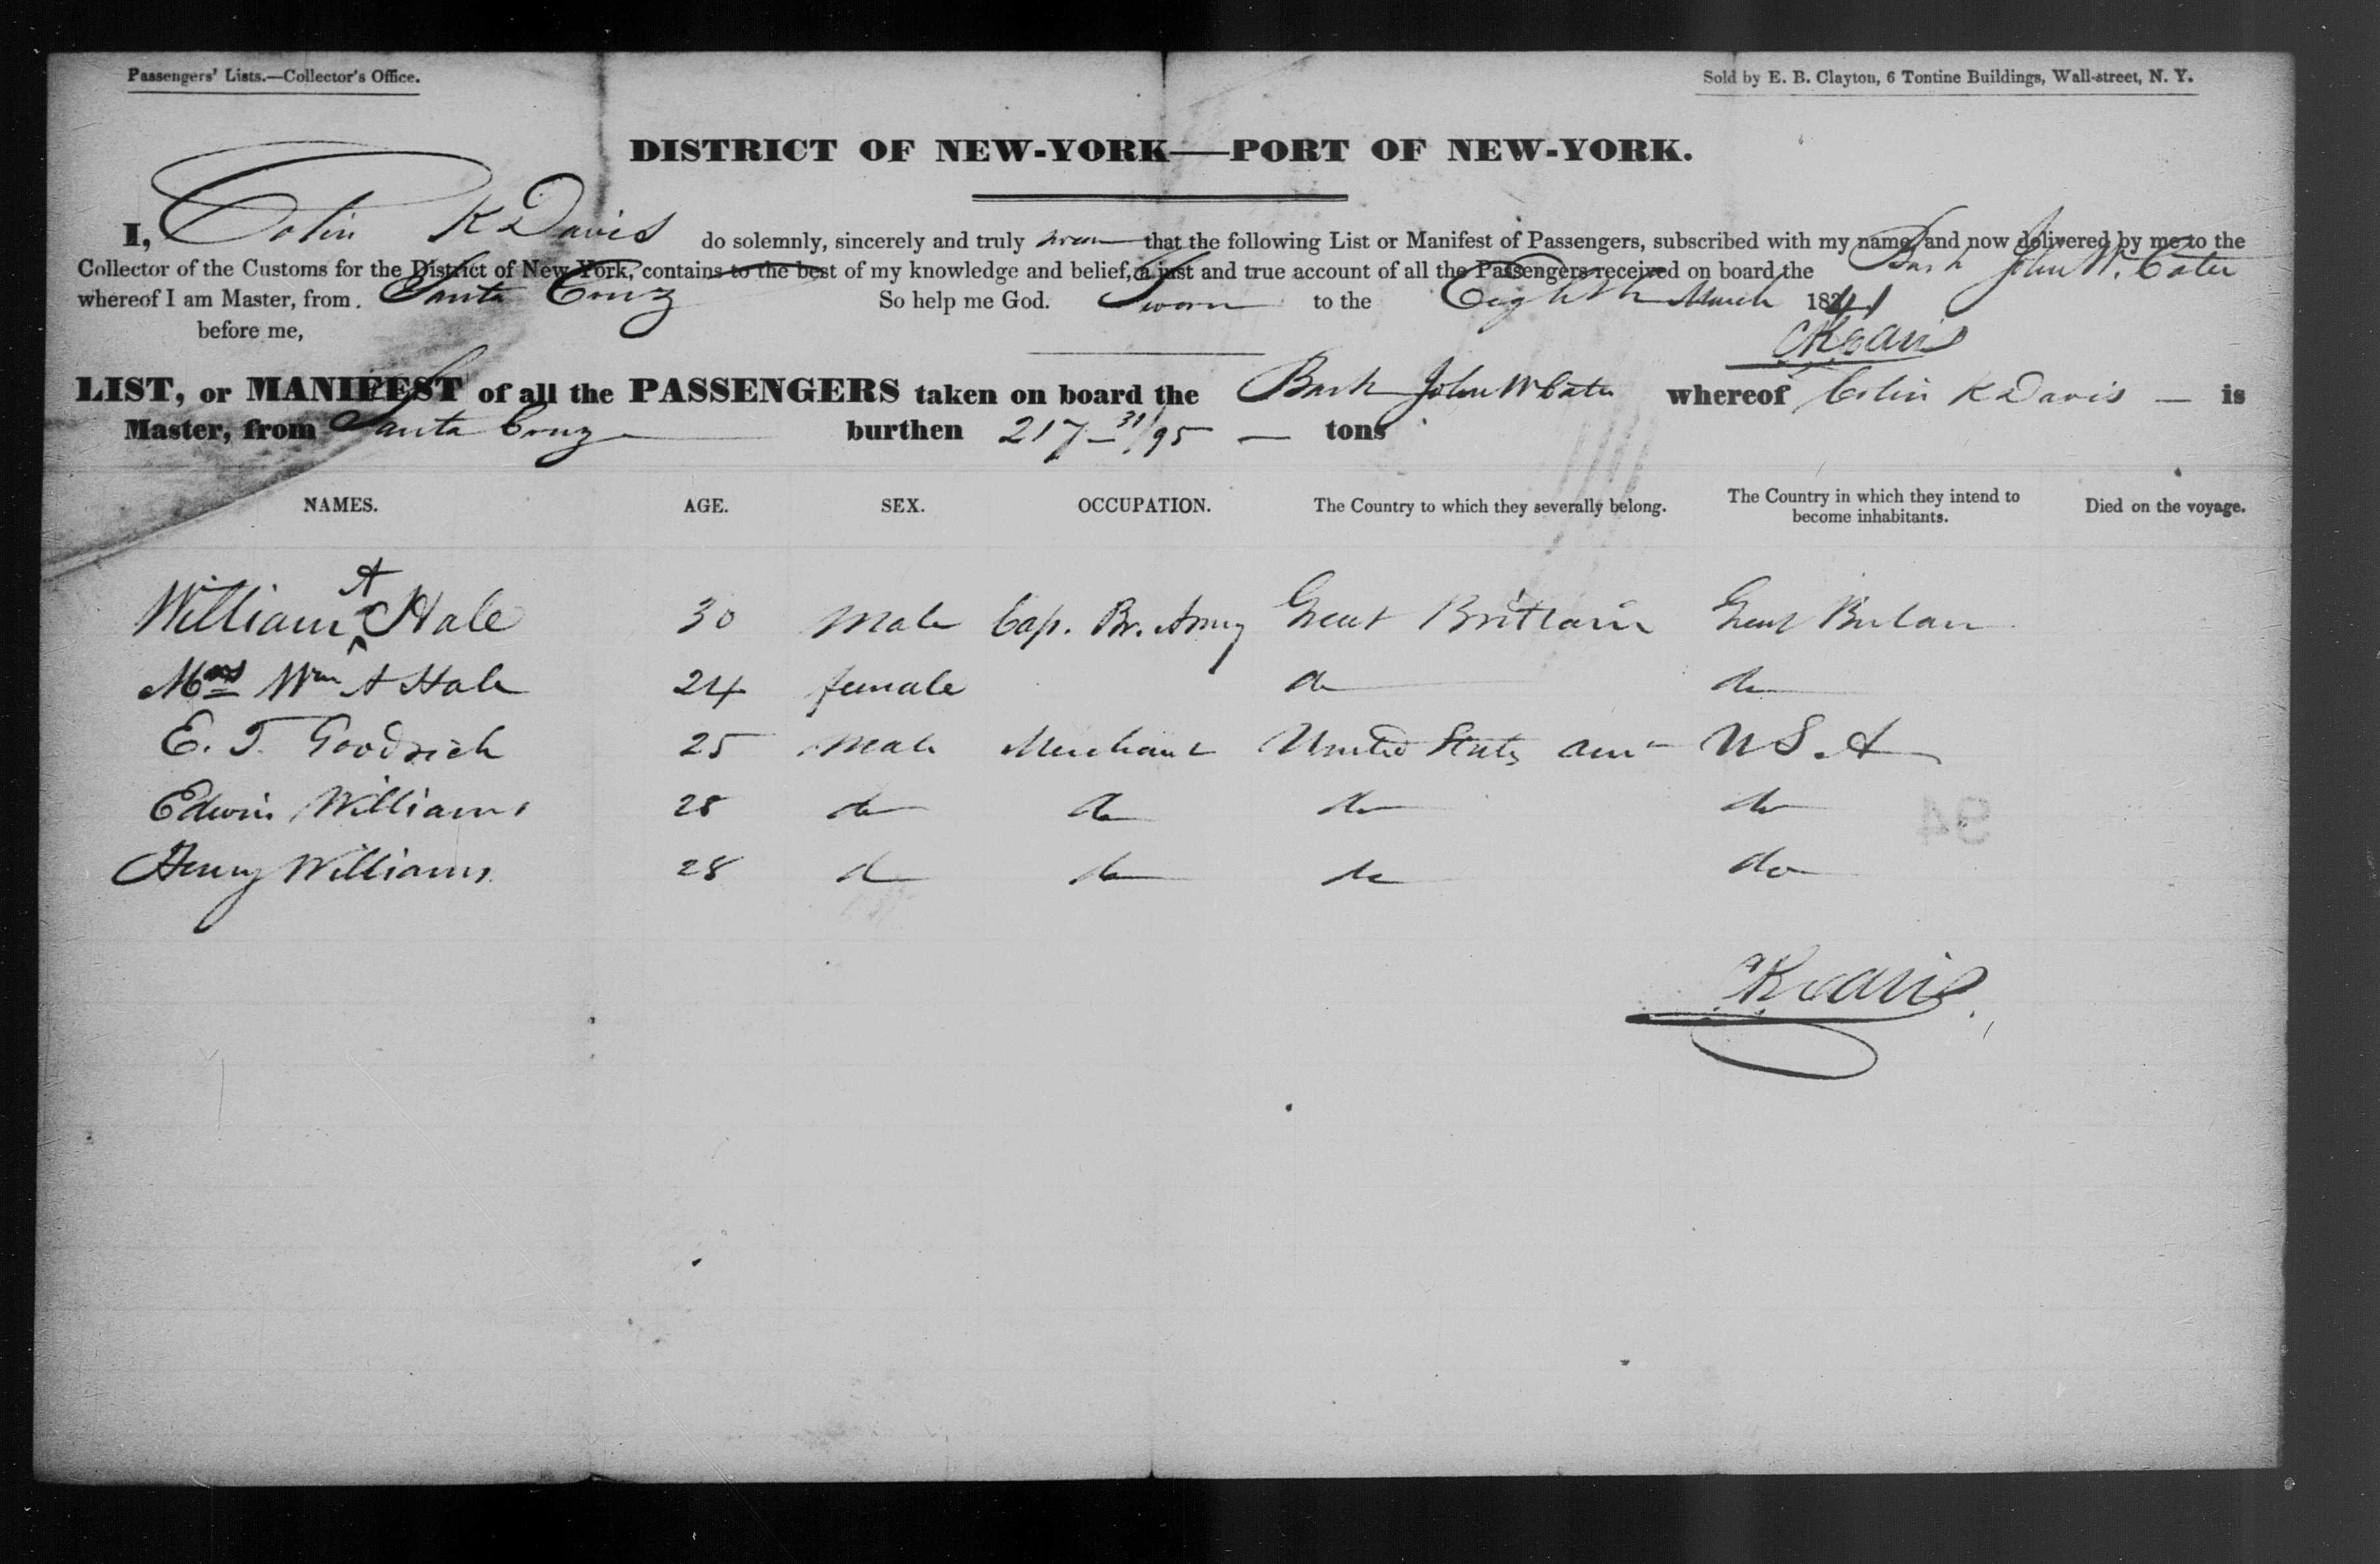 Passengers' Lists.—Collector's Office.
Sold by E. B. Clayton, 6 Tontine Buildings, Wall-street, N. Y.
DISTRICT OF NEW-YORK—PORT OF NEW-YORK.
I, Colin K Davis do solemnly, sincerely and truly swear that the following List or Manifest of Passengers, subscribed with my name, and now delivered by me to the
Collector of the Customs for the District of New York, contains to the best of my knowledge and belief, a just and true account of all the Passengers received on board the Bark John W. Cater
whereof I am Master, from Santa Cruz So help me God. Sworn to the Eighth March 1841
before me,
CKDavis
LIST, or MANIFEST of all the PASSENGERS taken on board the Bark John W Cater whereof Colin K Davis — is
Master, from Santa Cruz burthen 217–31/95 — tons
NAMES. AGE. SEX. OCCUPATION. The Country to which they severally belong. The Country in which they intend to become inhabitants. Died on the voyage.
William A Hale 30 Male Cap. Br. Army Great Brittain Great Britain
Mrs Wm A Hale 24 female do do
E. T. Goodrich 25 Male Merchant United States Am U S. A
Edwin Williams 28 do do do do
Henry Williams 28 do do do do
94
CKDavis